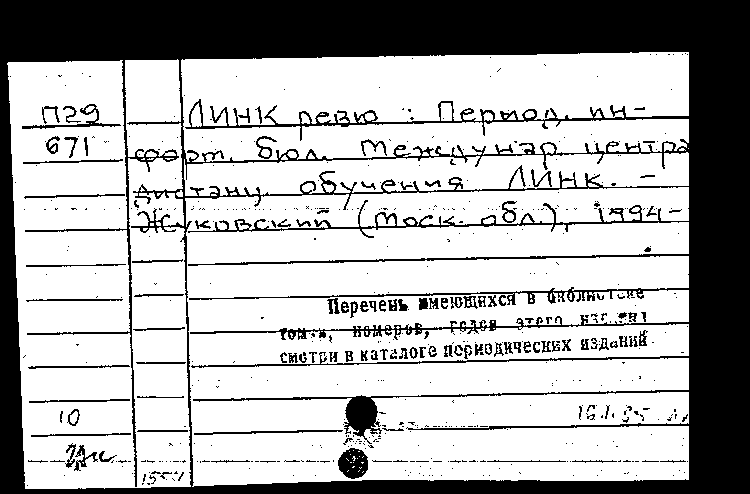 П29 ЛИНК ревю : Период. ин-
671 форм. бюл. Междунар центра
дистанц. обучения ЛИНК. -
Жуковский (Моск. обл.), 1994-
Перечень имеющихся в библиотеке
томов, номеров, годов этого издания
смотри в каталоге периодических изданий
10